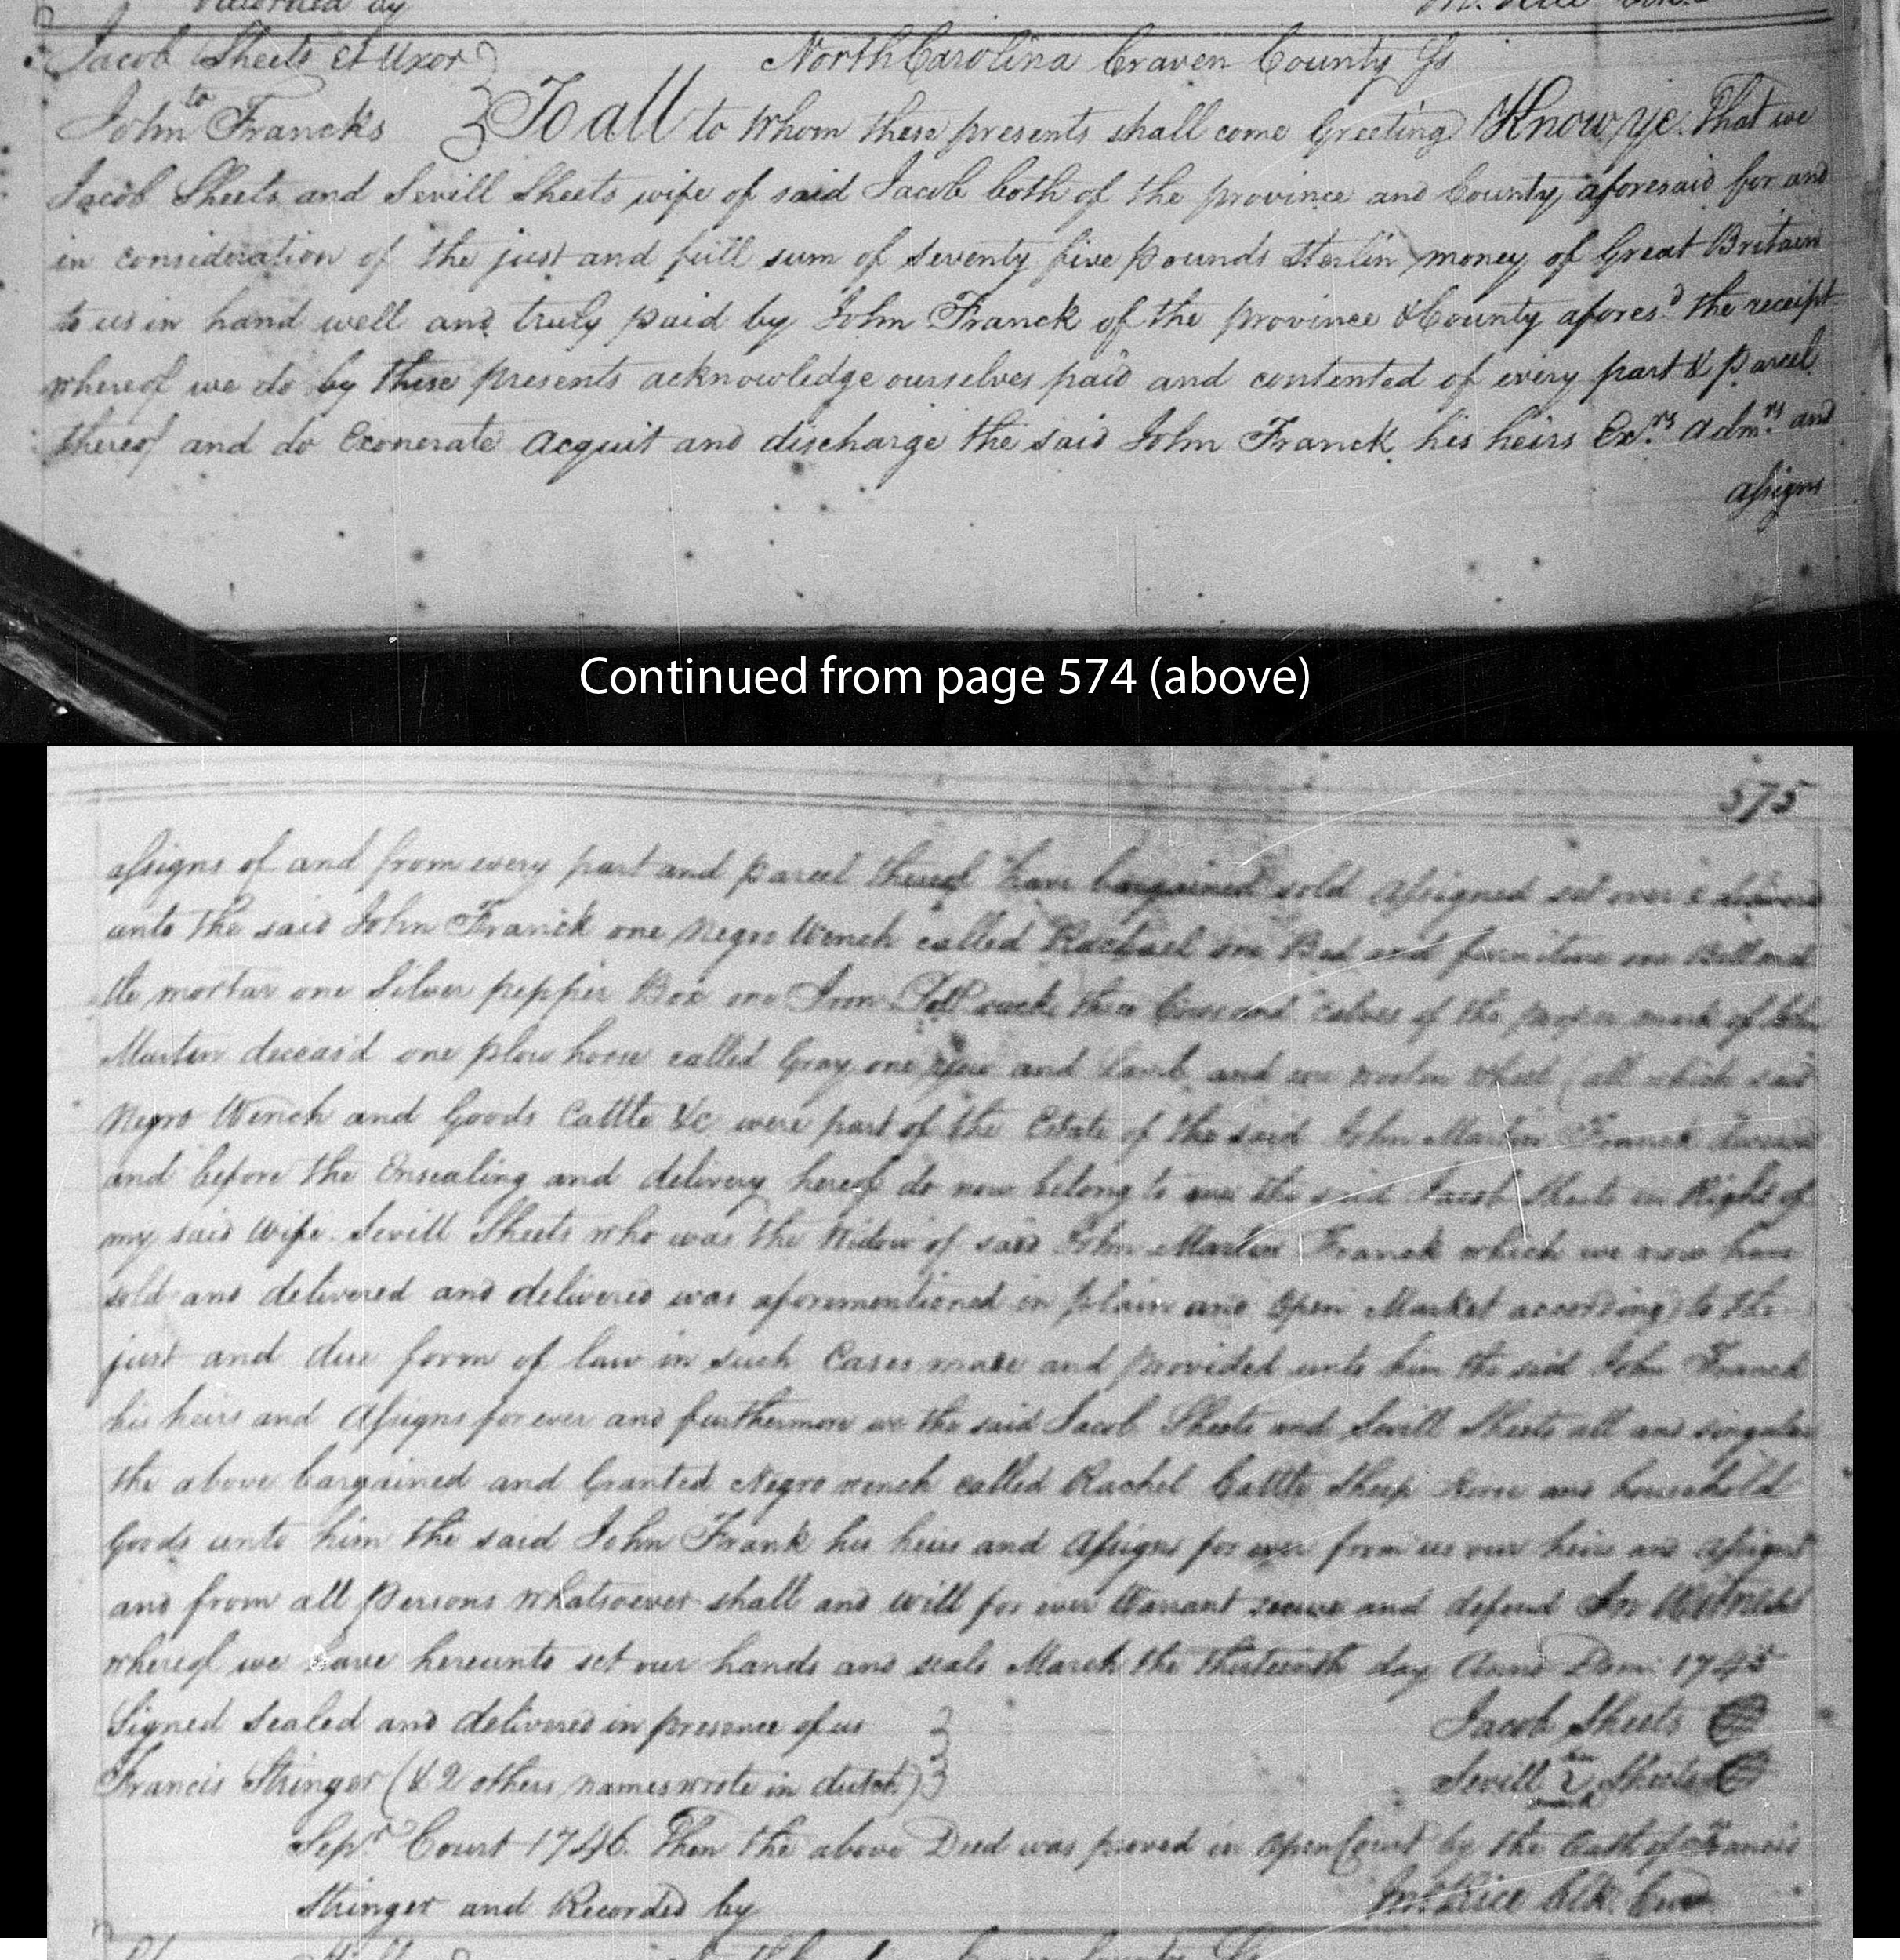 Recorded by
Jacob Sheets et Uxor North Carolina Craven County Ss
to
John Francks To all to whom these presents shall come Greeting Know ye That we
Jacob Sheets and Sevill Sheets wife of said Jacob both of the province and County aforesaid for and
in consideration of the just and full sum of seventy five pounds Sterlin money of Great Britain
to us in hand well and truly paid by John Franck of the province & County afores.d the receipt
whereof we do by these presents acknowledge ourselves paid and contented of every part & parcel
thereof and do Exonerate Acquit and discharge the said John Franck his heirs Ex.rs Adm.rs and
assigns
Continued from page 574 (above)
575
assigns of and from every part and parcel thereof have bargained sold assigned set over &
unto the said John Franck one Negro Wench called Rachael one Bed and furniture one Bell
mortar one Silver pepper Box one Iron Pott rack three Cows and calves of the proper mark of John
Martin deceas'd one plow horse called Gray one Yew and Lamb and one woolen wheel (all which said
Negro Wench and Goods Cattle &c were part of the Estate of the said John Martin Franck deceased
and before the Ensealing and delivery hereof do now belong to me the said Jacob Sheets in Right of
my said Wife Sevill Sheets who was the Widow of said John Martin Franck which we now have
sold and delivered and delivered was aforementioned in plain and Open Market according to the
just and due form of law in such Cases made and provided unto him the said John Franck
his heirs and Assigns for ever and furthermore we the said Jacob Sheets and Sevill Sheets all and singular
the above bargained and Granted Negro wench called Rachel Cattle Sheep Horse and household
Goods unto him the said John Frank his heirs and Assigns for ever from us our heirs and assigns
and from all persons whatsoever shall and will for ever Warrant secure and defend In Witness
whereof we have hereunto set our hands and seals March the thirteenth day Anno Dom: 1745
Signed Sealed and delivered in presence of us Jacob Sheets
Francis Stringer (& 2 others names wrote in dutch) Sevill her Sheets
mark
Sep.r Court 1746. Then the above Deed was proved in Open Court by the Oath of Francis
Stringer and Recorded by Rice Clk. Cur